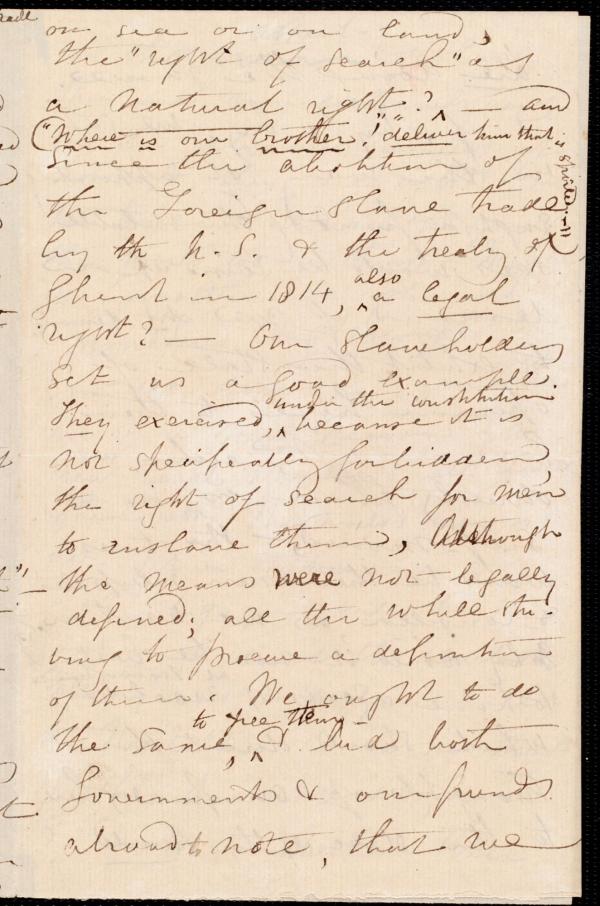 on sea or on land,
the "right of search" as
a natural right? — and
("Where is our brother!" "deliver him that is spoiled.")
since the abolition of
the Foreign Slave trade
by th U.S. & the treaty of
Ghent in 1814, also a legal
right? — Our slaveholders
set us a good example.
They exercised, under the constitution because it is
not specifically forbidden,
the right of search for men
to enslave them, Although
the means were not legally
defined; all the while stri-
ving to procure a definition
of them. We ought to do
the same, to free them — & bid both
Governments & our friends
abroad to note, that we